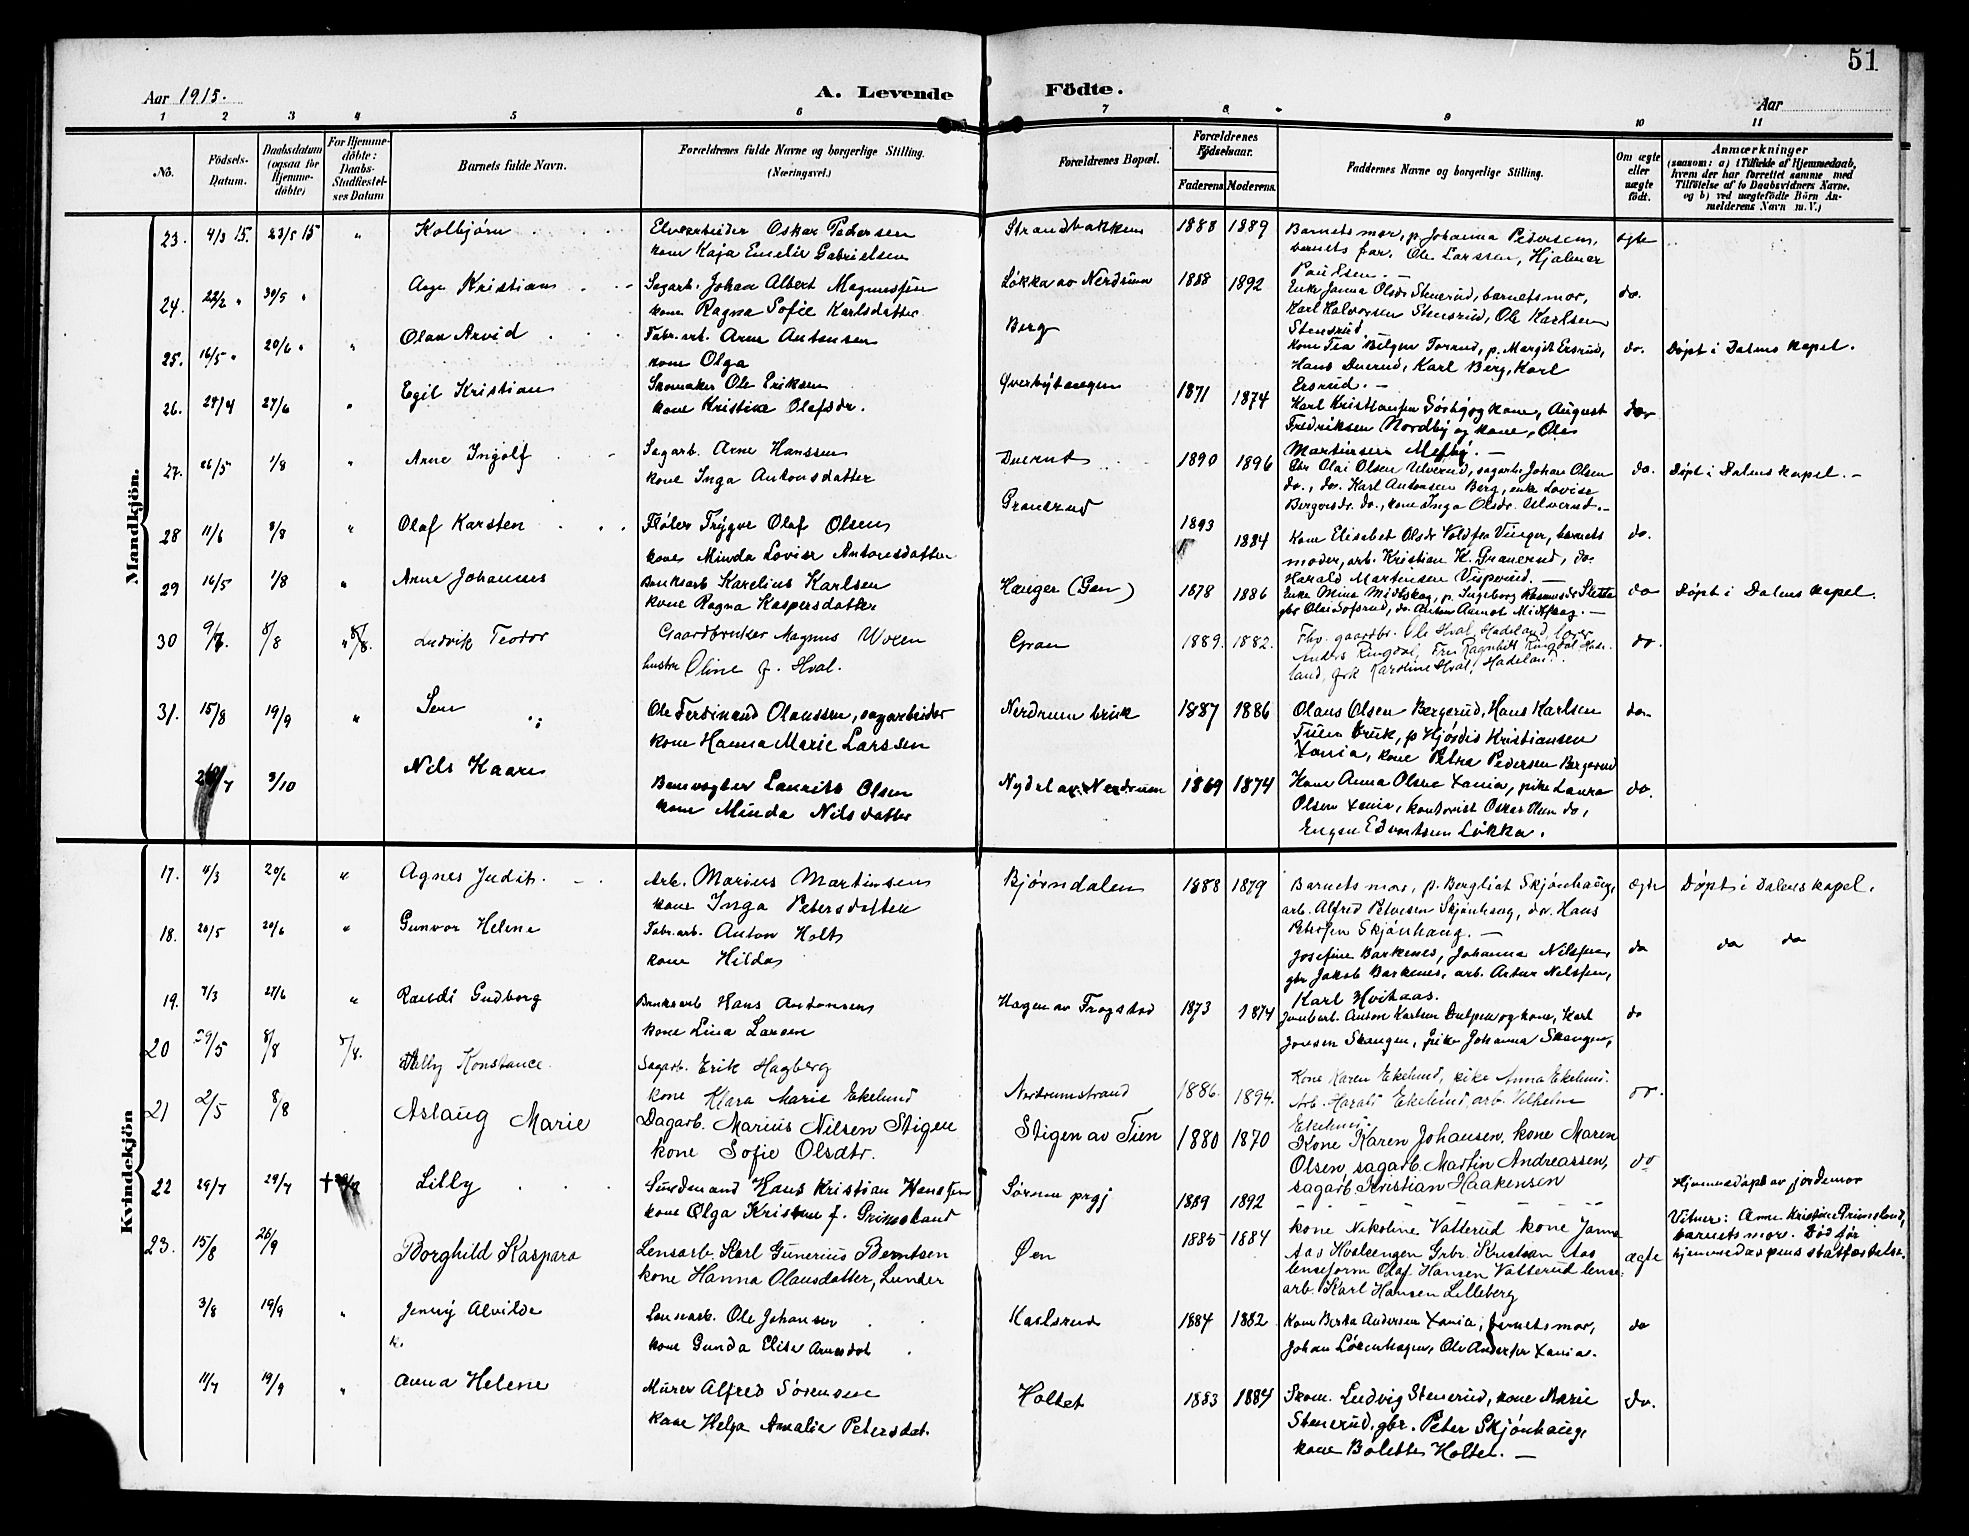 51
Aar 1915.
A. Levende Födte.
Aar
1 2 3 4 5 6 7 8 9 10 11
No.
Födsels-Datum.
Daabsdatum (ogsaa for Hjemme-döbte)
For Hjemme-döbte: Daabs-Stadfæstel-ses Datum
Barnets fulde Navn.
Forældrenes fulde Navne og borgerlige Stilling.
(Næringsvei.)
Forældrenes Bopæl.
Forældrenes Födselsaar.
Faderens Moderens
Faddernes Navne og borgerlige Stilling.
Om ægte eller uægte födt.
Anmærkninger
(saasom: a) i Tilfælde af Hjemmedaab,
hvem der har forrettet samme med
Tilföielse af to Daabsvidners Navne,
og b) ved uægtefödte Börn An-
melderens Navn m. V.)
Mandkjön.
23. 4/3 15. 23/5 15 " Kolbjørn Elvearbeider Oskar Pedersen Strandbakken 1888 1889 Barnets mor, p. Johanna Petersen, ægte
kone Kaja Emelie Gabrielsen barnets far, Ole Larssen, Hjalmar
Paulsen. —
24. 22/2 " 30/5 " Aage Kristian Sagarb. Johan Albert Magnussen Løkka av Nerdrum 1888 1892 Enke Janna Olsdr Stensrud, barnets mor, do.
kone Ragna Sofie Karlsdatter Karl Halvorsen Stensrud, Ole Karlsen
Stensrud
25. 16/5 " 20/6 " " Olav Arvid Fabr.arb. Arne Antonsen Berg kone Tea Belgen Torund, p. Margit Ersrud, do. Døpt i Dalens kapel.
kone Olga Hans Duerud, Karl Berg, Karl
Ersrud. —
26. 28/4 27/6 " Egil Kristian Skomaker Ole Eriksen Øverbyhaugen 1871 1874 Karl Kristiansen Sørby og kone, August do
kone Kristine Olafsdr. Fredriksen Nordby og kone, Ole
Martinsen
27. 26/5 1/8 " Arne Ingolf Sagarb. Arne Hanssen Duerud 1890 1896 Gbr Olai Olsen Ulverud, sagarb. Johan Olsen do. Døpt i Dalens kapel. —
kone Inga Antonsdatter do., do. Karl Antonsen Berg, enke Lovise
Bergersdr. do., kone Inga Olsdr. Ulverud. —
28 11/6 8/8 " Olaf Karsten Fløter Trygve Olaf Olsen Granerud 1893 1884 Kone Elisabet Olsdr Voldfra Vinger, barnets do.
kone Minda Lovise Antonsdatter moder, arb. Kristian K. Granerud, do.
Harald Martinsen Visperud. —
29 16/5 1/8 " Arne Johannes Bruksarb Karelius Karlsen Hauger (Gran) 1878 1886 Enke Mina Midtskog, p. Ingeborg Rasmusdr Sletta do Døpt i Dalens kapel.
kone Ragna Kaspersdatter gbr Olai Sofsrud, do. Anton Aamot Midtskog. —
30 8/8 " 8/8. Ludvik Teodor Gaardbruker Magnus Uven Gran 1889. 1882. Fhv. gaardbr. Ole Hval, Hadeland, lærer do.
hustru Oline f. Hval. Anders Ringdal, Fru Ragnhild Ringdal Hade-
land, frk Karoline Hval, Hadeland.
31. 15/8 19/9 " Sen Ole Ferdinand Olaussen, sagarbeider Nerdrum bruk 1887 1886 Olaus Olsen Bergerud, Hans Karlsen do.
kone Hanna Marie Larssen bruk, p Hjørdis Kristiansen
Xania, kone Petra Pedersen Bergerud
3/10 Nils Kaare Banevogter Laurits Olsen Nydel av Nerdrum 1869 1874 Kone Anna Olsen Xania, pike Laura do.
kone Minda Nilsdatter Olsen Xania, kontorist Oskar Olsen do,
Edvartsen Løkka.
Kvindekjön
17. 4/3 20/6 " Agnes Judit. Arb. Marius Martinsen Bjørndalen 1888 1879 Barnets mor, p. Bergliot Skjønhaug, Ægte Døpt i Dalens kapel.
kone Inga Petersdatter arb. Alfred Petersen Skjønhaug, do. Hans
Petersen Skjønhaug. —
18. 20/5 20/6 " Gunvor Helene Fabr.arb. Anton Holt Josefine Barkenes, Johanna Nilssen, do do do
kone Hilda gbr Jakob Barkenes, arb. Artur Nilssen,
Karl Hvithaas.
19. 7/3 27/6 " Randi Gudborg Bruksarb Hans Antonsen Hagen av Trøgstad 1873 1874 Jernbarb. Anton Karlsen Dulpen og kone, Karl do
kone Lina Larsen Jonsen Skangen, pike Johanna Skangen,
20 29/5 8/8 8/8. Ally Konstance. Sagarb. Erik Hagberg Nerdrumstrand 1886. 1894. Kone Karen Ekelund, pike Anna Ekelund. do.
kone Klara Marie Ekelund Arb. Harald Ekelund, arb. Vilhelm
Ekelund.
21 2/5 8/8 Aslaug Marie Dagarb. Marius Nilsen Stigen Stigen av Tien 1880 1870 Kone Karen Johansen, kone Maren do
kone Sofie Olsdtr. Olsen, sagarb. Martin Andreassen,
sagarb. Kristian Haakensen
22 29/7 29/7 † Lilly Hans Kristian Hanssen Sørum prgj 1889 1892 Hjemmedøpt av jordemor
kone Olga Kristine f. Grimsland Vitner: Anne Kristine Grimsland,
barnets mor. Død før
hjemmedaapens statfæstelse.
23. 15/8 26/9 Borghild Kaspara Lensarb. Karl Gunerius Berntsen Øen 1885 1884 kone Nikoline Vatterud kone Janna ægte
kone Hanna Olausdatter, Lunder Aas Grbr. Kristian Aas
lenseform Olaf Hansen Vatterud lense-
arb. Karl Hansen Lilleberg
3/8 19/9 " Jenny Alvilde Lensearb. Ole Johansen Karlsrud 1884 1882 Kone Berta Andersen Xania, barnets mor, do
kone Gunda Elise Arnesdat Johan Løkenhagen, Ole Andersen Xania.
11/7 19/9 " Anna Helene Murer Alfred Sørensen Holtet 1883 1884 Skom. Ludvig Stenerud, kone Marie do.
kone Helga Amalie Petersdat. Stenerud, gbr. Peter Skjønhaug,
kone Bolette Holter. —